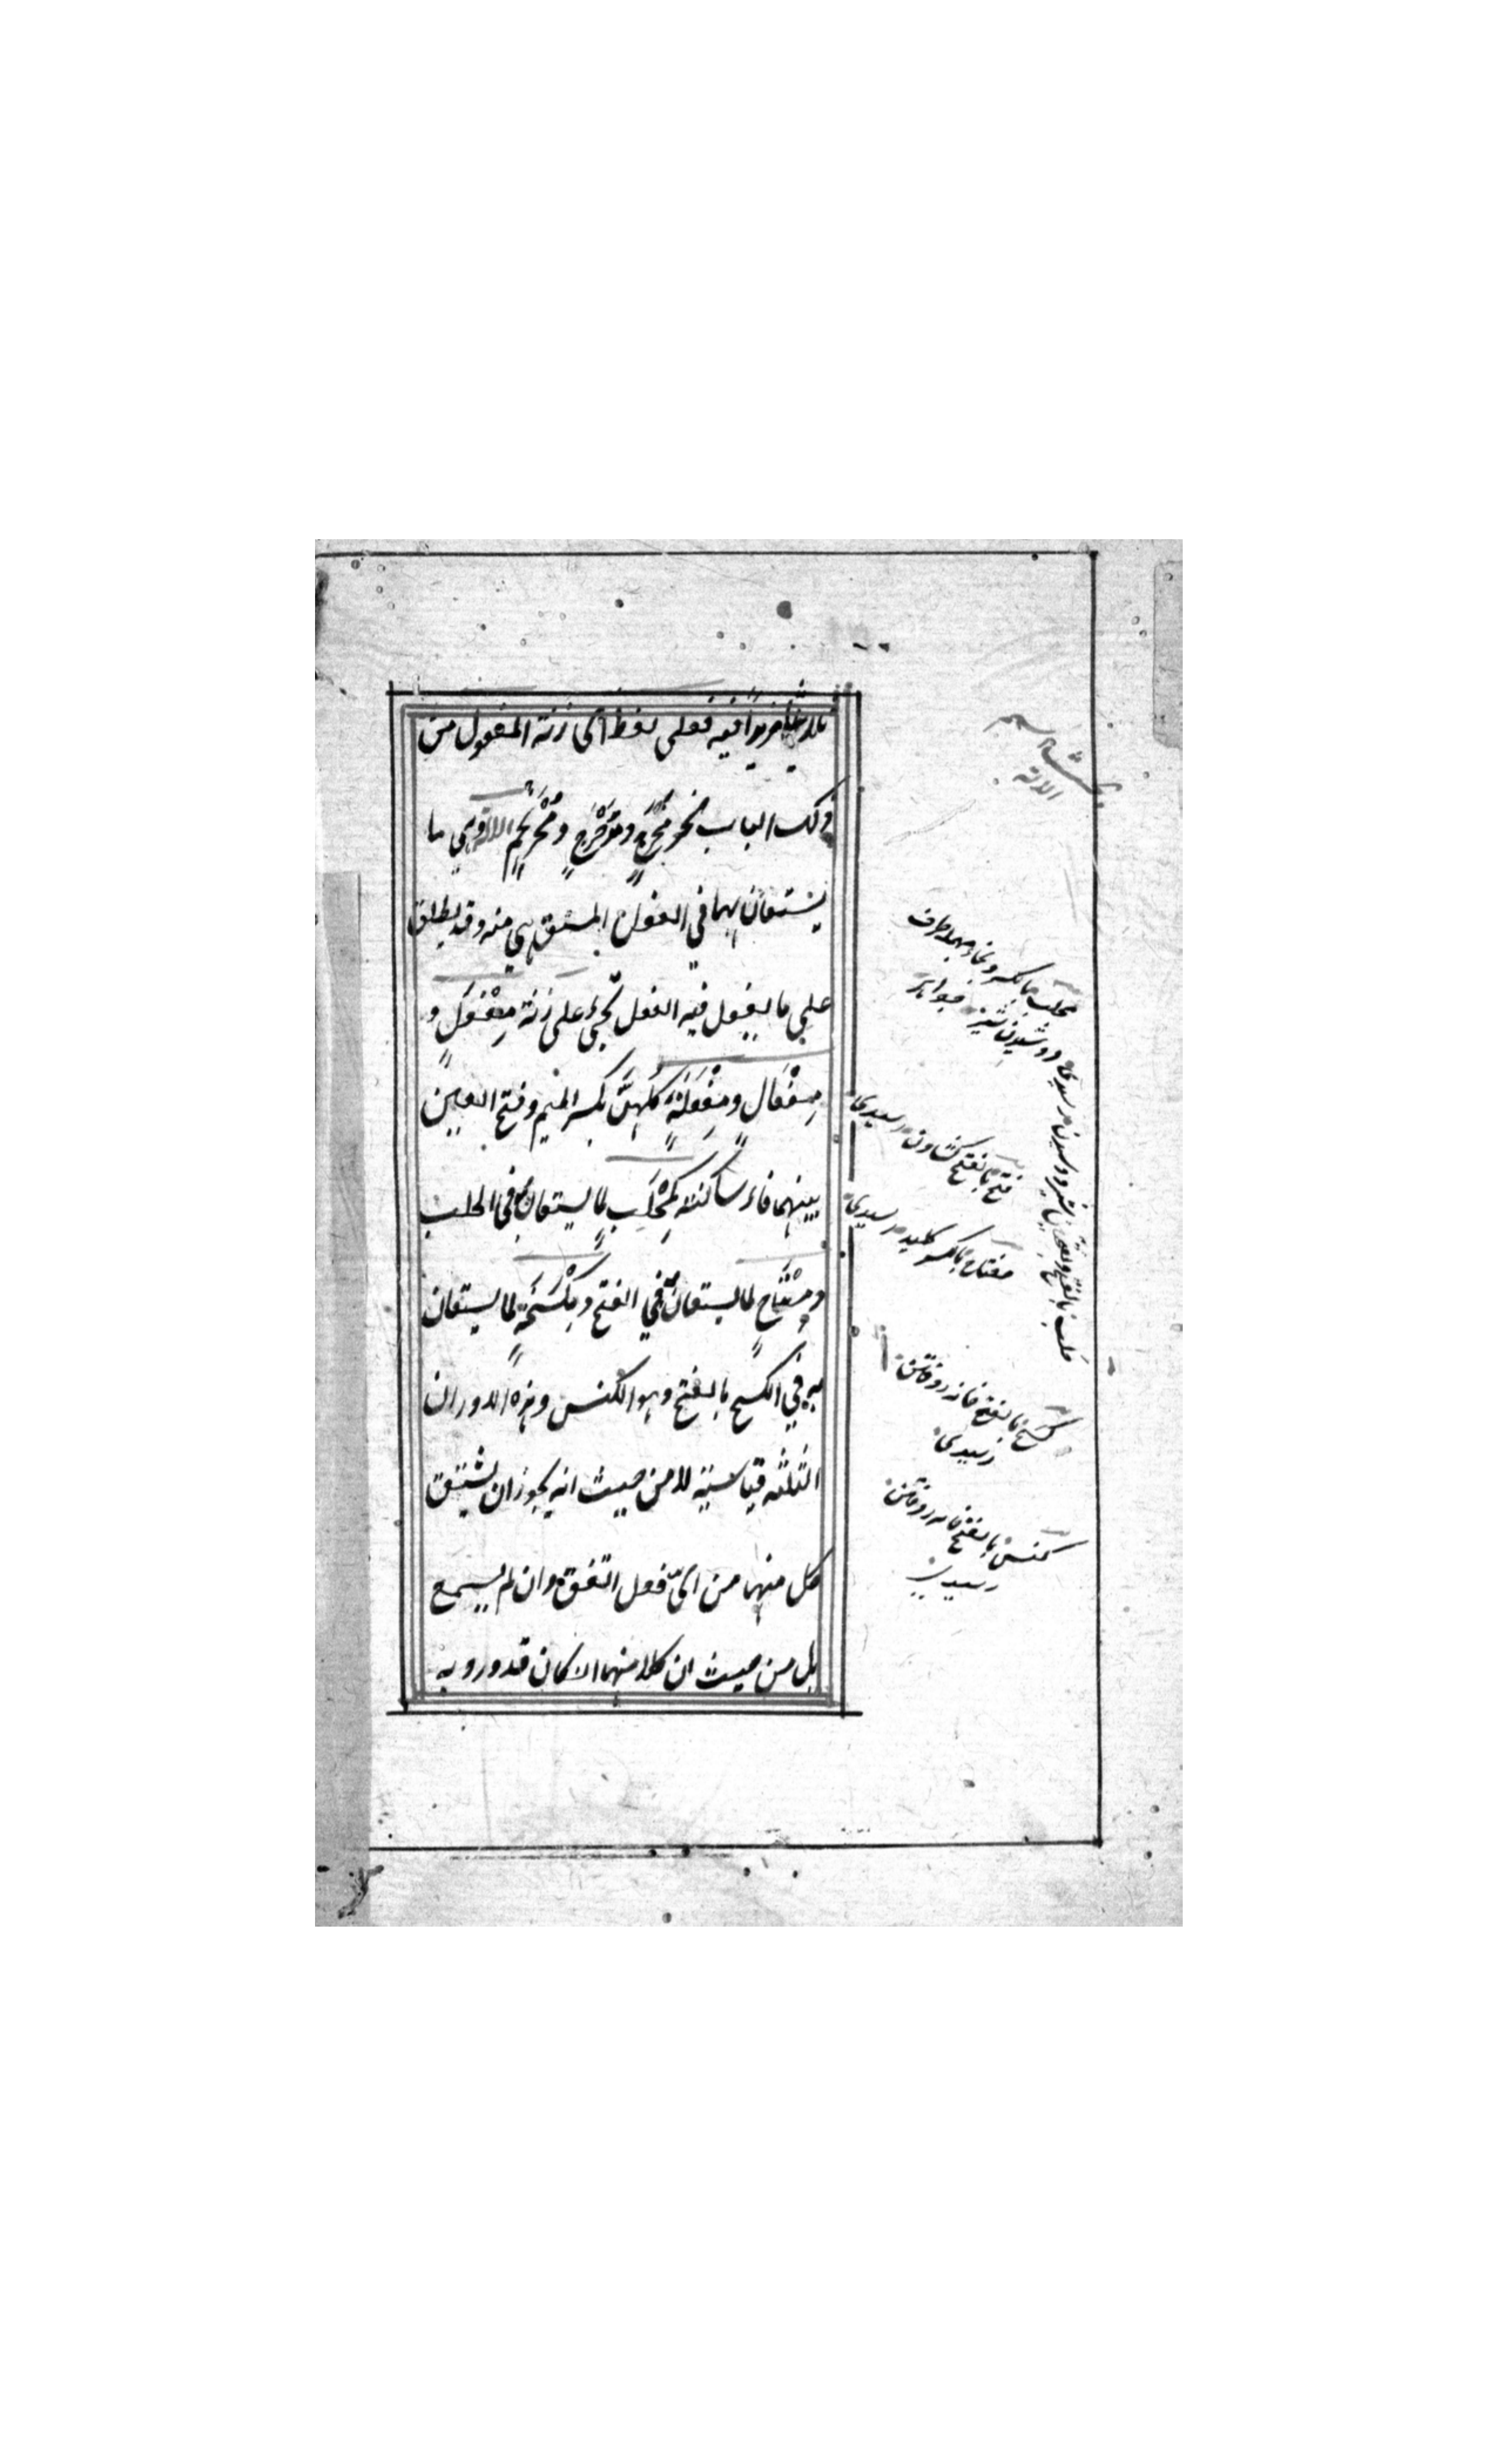 ثلاثيا مزيدا فيه فعلى لفظ اى زنة المفعول من
ذلك الباب نحو مُخْرَجٍ ومُدَحْرَجٍ ومُحْرَنْجَمٍ الالة وهي ما
يستعان بها في الفعل المشتق هي منه وقد يطلق
على ما يفعل فيه الفعل تجيء على زنة مِفْعَلٍ و
مِفْعَالٍ ومِفْعَلَةٍ كلهن بكسر الميم وفتح العين
بينهما فاء ساكنة كمِحْلَبٍ لما يستعان به في الحلب
ومِفْتَاحٍ لما يستعان به في الفتح ومِكْسَحَةٍ لما يستعان
به في الكسح بالفتح وهو الكنس وهذه الاوزان
الثلثة قياسية لا من حيث انه يجوز ان يشتق
كل منها من اىّ فعل اتفق وان لم يسمع
بل من حيث ان كلا منها ان كان قد ورد به
الالة
محلب بالكسر
دوشيدن شير
فتح بالفتح كشادن رسيدى
مفتاح بالكسر كليد رسيدى
كسح بالفتح خانه روفتن
رسيدى
كنس بالفتح خانه روفتن
رسيدى